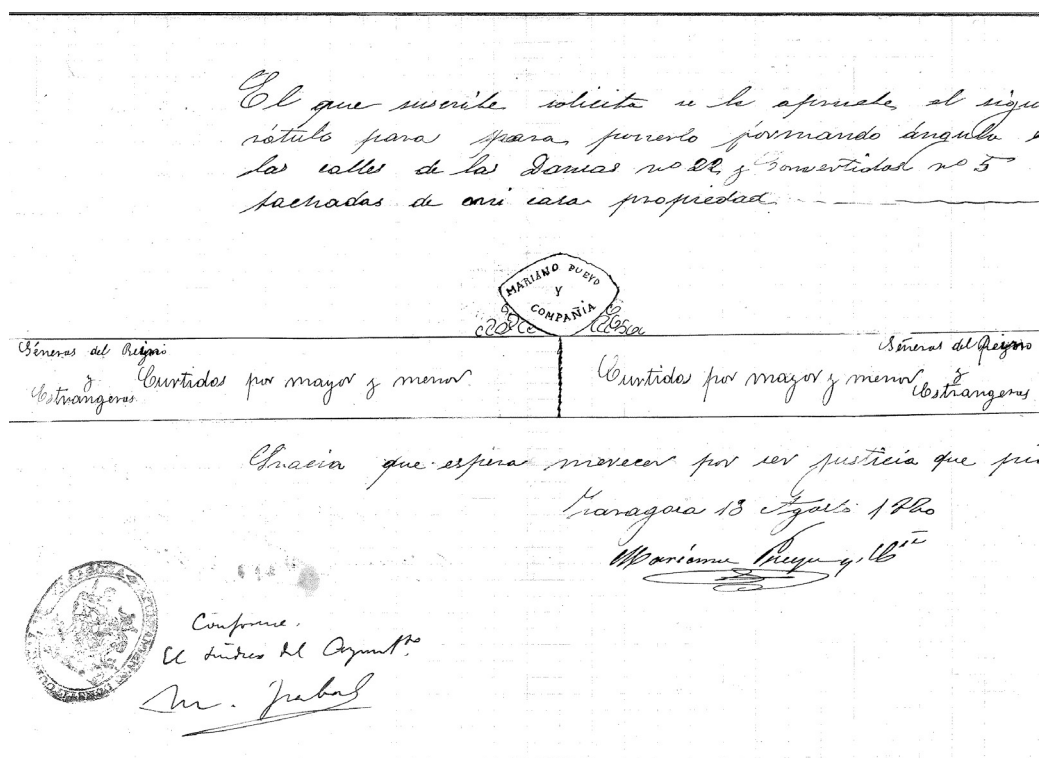 El que suscribe solicita se le apruebe el sigu
rótulo para para ponerlo formando ángulo e
las calles de las Damas nº 22 y Convertidos nº 5
fachadas de mi casa propiedad
MARIANO PUEYO
Y
COMPAÑIA
Géneros del Reyno
y
Estrangeros.
Curtidos por mayor y menor.
Curtidos por mayor y menor
Géneros del Reyno
y
Estrangeros
Gracia que espera merecer por ser justicia que pi
Zaragoza 13 Agosto 1880
Mariano Pueyo y Cía
Conforme.
El Síndico del Ayuntto.
M.